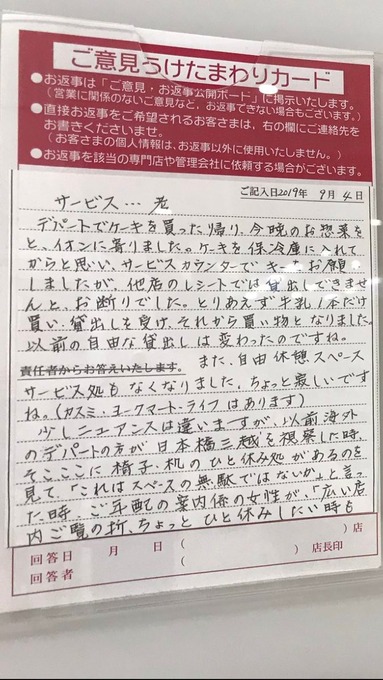 ご意見うけたまわりカード
●お返事は「ご意見・お返事公開ボード」に掲示いたします。
（営業に関係のないご意見など、お返事できない場合もございます。）
●直接お返事をご希望されるお客さまは、右の欄にご連絡先を
お書きくださいませ。
（お客さまの個人情報は、お返事以外に使用いたしません。）
●お返事を該当の専門店や管理会社に依頼する場合がございます。
ご記入日2019年 9月 4日
サービス…
デパートでケーキを買った帰り、今晩のお惣菜を
と、イオンに寄りました。ケーキを保冷庫に入れて
からと思い、サービスカウンターでキーをお願い
しましたが、他店のレシートでは貸出しできませ
んと、お断りでした。とりあえず牛乳1本だけ
買い、貸出しを受け、それから買い物となりました。
以前の自由な貸出しは変わったのですね。
責任者からお答えいたします。 また、自由休憩スペース
サービス処もなくなりました。ちょっと寂しいです
ね。(カスミ・ヨークマート・ライフはあります)
少しニュアンスは違いますが、以前海外
のデパートの方が日本橋三越を視察した時、
そこここに椅子・机のひと休み処があるのを
見て、「これはスペースの無駄ではないか」と言っ
た時、ご年配の案内係の女性が、「広い店
内ご覧の折、ちょっとひと休みしたい時も
回答日 月 日 ( )店
回答者 ( 店長印